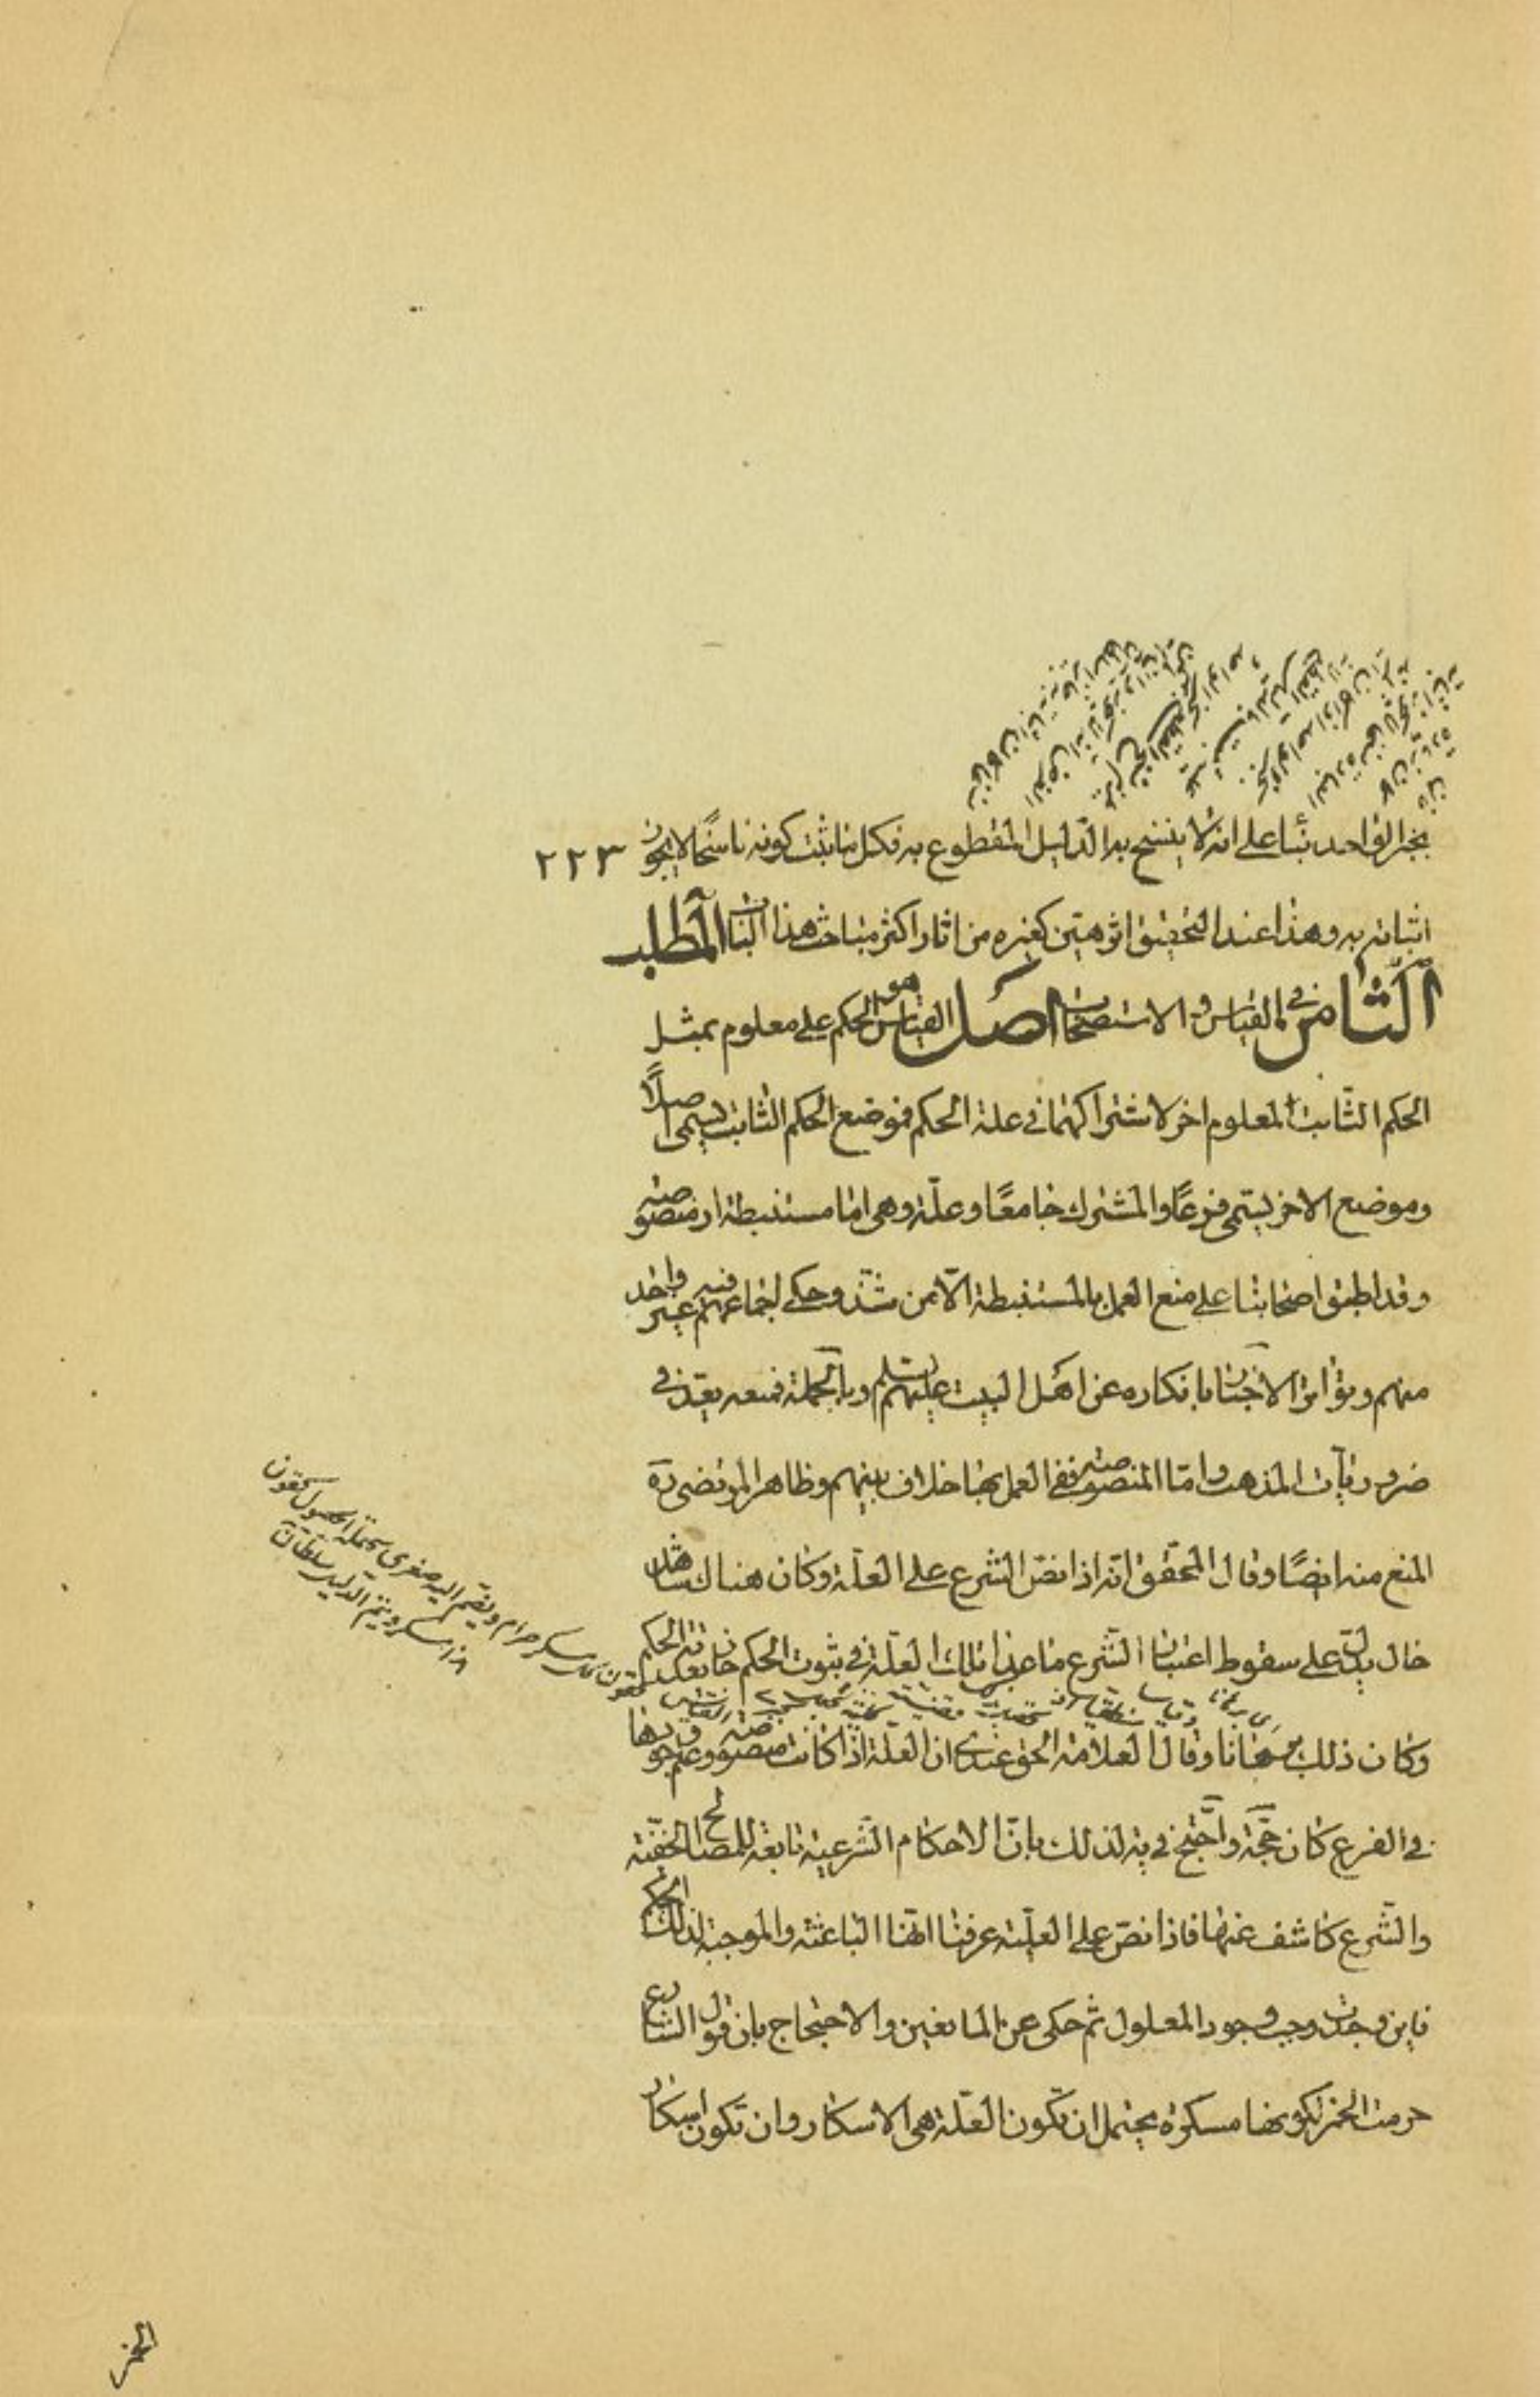 بخبر الواحد بناء على انه لا ينسخ به الدليل المقطوع به فكل ما يثبت كونه ناسخًا لا يجوز
٢٢٣
اثباته به وهذا عند التحقيق اثر هين كغيره من اثار اكثر مباحث هذا الباب المطلب
الثامن في القياس والاستصحاب اصل القياس هو الحكم على معلوم بمثل
الحكم الثابت لمعلوم اخر لاشتراكهما في علة الحكم فموضع الحكم الثابت يسمى اصلًا
وموضع الاخر يسمى فرعًا والمشترك جامعًا وعلّة وهى اما مستنبطة او منصوصة
وقد اطبق اصحابنا على منع العمل بالمستنبطة الّا من شذّ وحكى اجماعهم فيه غير واحد
منهم وتواتر الاخبار بانكاره عن اهل البيت عليهم السلم وبالجملة فمنعه يعدّ في
ضروريات المذهب واما المنصوصة ففى العمل بها خلاف بينهم وظاهر المرتضى ره
المنع منه ايضًا وقال المحقق انّه اذا نصّ الشرع على العلّة وكان هناك شاهد
حال يدلّ على سقوط اعتبار الشرع ما عدا تلك العلّة في ثبوت الحكم جاز تعدية الحكم
وكان ذلك برهانا وقال العلامة الحق عندى ان العلّة اذا كانت منصوصة وعلم وجودها
في الفرع كان حجّة واحتجّ في يه لذلك بانّ الاحكام الشرعية تابعة للمصالح الخفيّة
والشرع كاشف عنها فاذا نصّ على العلّية عرفنا انّها الباعثة والموجبة لذلك الحكم
فاين وجدت وجب وجود المعلول ثم حكى عن المانعين والاحتجاج بان قول الشارع
حرمت الخمر لكونها مسكرة يحتمل ان تكون العلّة هى الاسكار وان تكون اسكار
الخمر